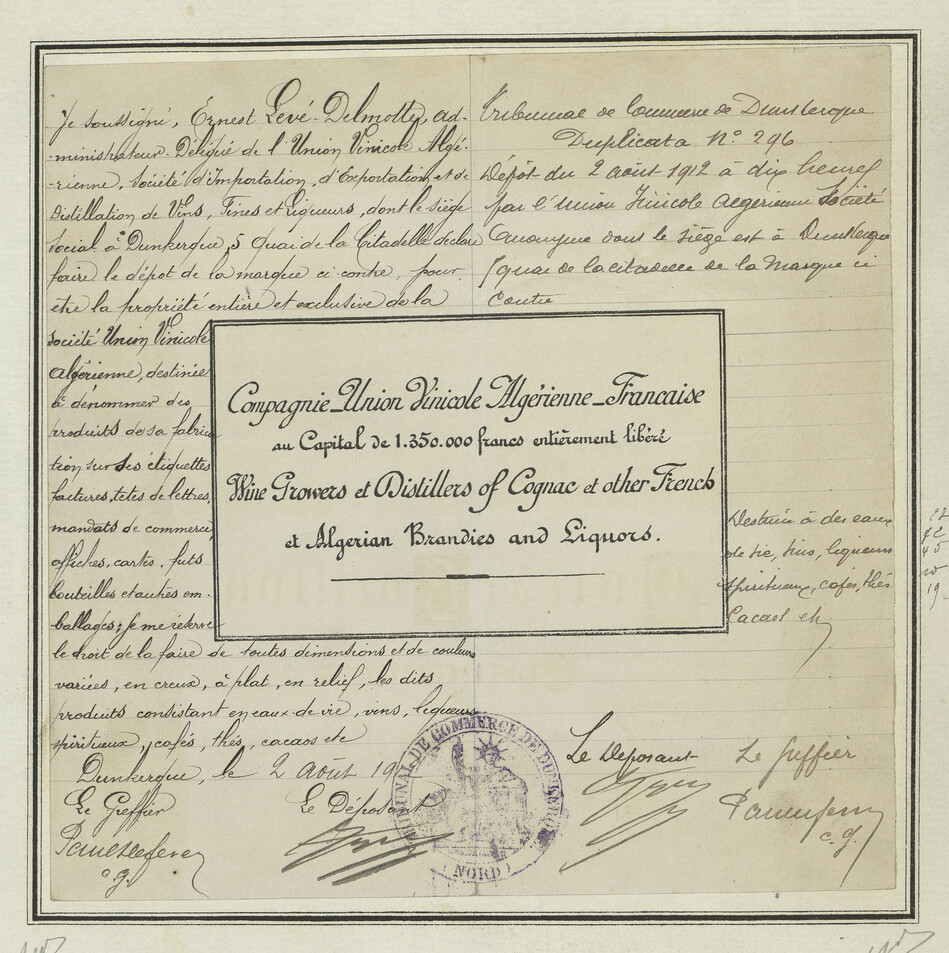 Je soussigné, Ernest Levé-Delmotte, ad-
-ministrateur-Délégué de l'Union Vinicole Algé-
-rienne, Société d'Importation, d'Exportation, et de
Distillation de Vins, Fines et Liqueurs, dont le siège
social à Dunkerque, 5 Quai de la Citadelle déclare
faire le dépôt de la marque ci-contre, pour
être la propriété entière et exclusive de la
société Union Vinicole
Algérienne, destinée
à dénommer des
produits de sa fabrica
tion sur ses étiquettes
factures, têtes de lettres,
mandats de commerce,
affiches, cartes, futs
bouteilles et autres em-
ballages; je me réserve
le droit de la faire de toutes dimensions et de couleurs
variées, en creux, à plat, en relief, les dits
produits consistant en eaux-de-vie, vins, liqueurs
spiritueux, cafés, thés, cacaos etc
Dunkerque, le 2 Août 19
Le Greffier
Le Déposant
c. g.
Tribunal de Commerce de Dunkerque
Duplicata N° 296
Dépôt du 2 août 1912 à dix heures
par l'Union Vinicole Algérienne Société
Anonyme dont le siège est à Dunkerque
5 quai de la citadelle de la Marque ci
Contre
Compagnie_Union Vinicole Algérienne_Francaise
au Capital de 1.350.000 francs entièrement libéré
Wine Growers et Distillers of Cognac et other French
et Algerian Brandies and Liquors.
Destiné à des eaux
de vie, vins, liqueurs
spiritueux, cafés, thés
Cacaos etc
Le Déposant
Le Greffier
c. g.
TRIBUNAL DE COMMERCE DE DUNKERQUE
(NORD)